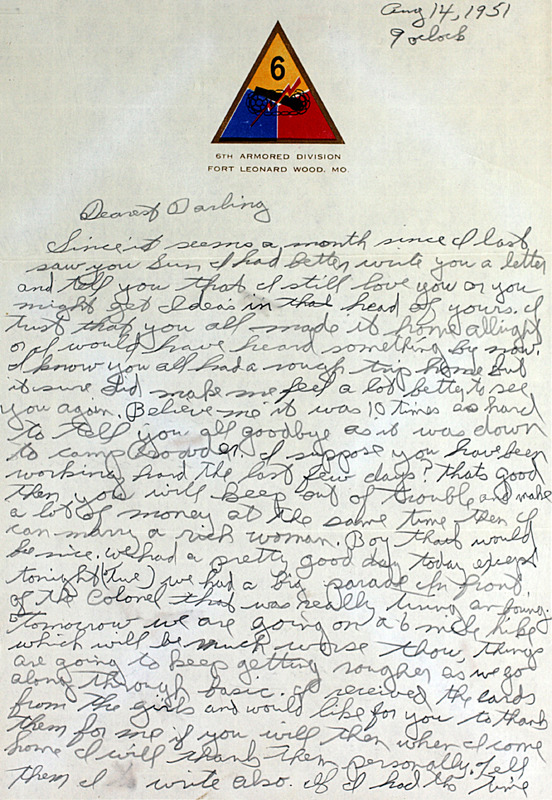 Aug 14, 1951
9 oclock
6
6TH ARMORED DIVISION
FORT LEONARD WOOD, MO.
Dearest Darling
Since it seems a month since I last
saw you Sun, I had better write you a letter
and tell you that I still love you or you
might get Ideas in that head of yours. I
trust that you all made it home allright
or I would have heard something by now.
I know you all had a rough trip home but
it sure did make me feel a lot better to see
you again. Believe me it was 10 times as hard
to tell you all goodbye as it was down
to camp I suppose you have been
working hard the last few days? thats good
then you will keep out of trouble and make
a lot of money at the same time then I
can marry a rich woman. Boy that would
be nice. we had a pretty good day today except
tonight (tue) we had a big parade in front
of the Colonel that was really tiring an boring
tomorrow we are going on a 6 mile hike
which will be much worse thow, things
are going to keep getting rougher as we go
along through basic. I received the cards
from the girls and would like for you to thank
them for me if you will then when I come
home I will thank them personally. Tell
them I write also. if I had the time